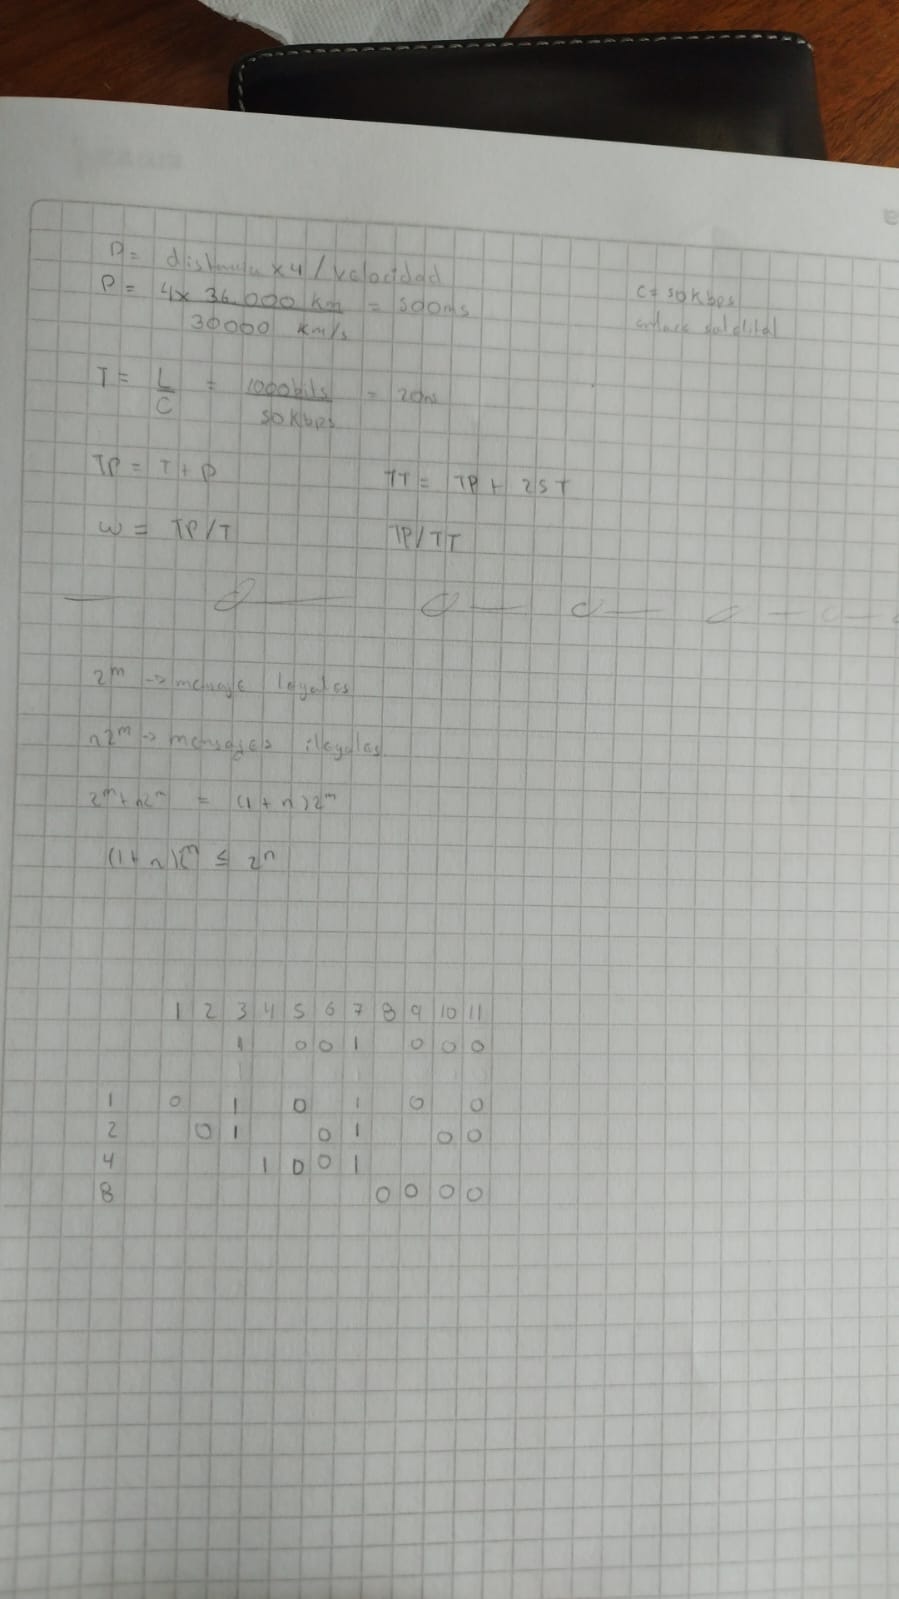 P = distancia x4 / velocidad
P = 4x 36.000 km = 500ms
30000 km/s
C= 50Kbps
enlace satelital
T = L = 1000bits = 20ms
C 50Kbps
TP = T + P TT = TP + 2ST
W = TP/T TP/TT
2^m -> mensaje legales
n2^m -> mensajes ilegales
2^m + n2^m = (1 + n)2^m
(1+n)2^m ≤ 2^n
1 2 3 4 5 6 7 8 9 10 11
1 0 0 1 0 0 0
1 0 1 0 1 0 0
2 0 1 0 1 0 0
4 1 0 0 1
8 0 0 0 0